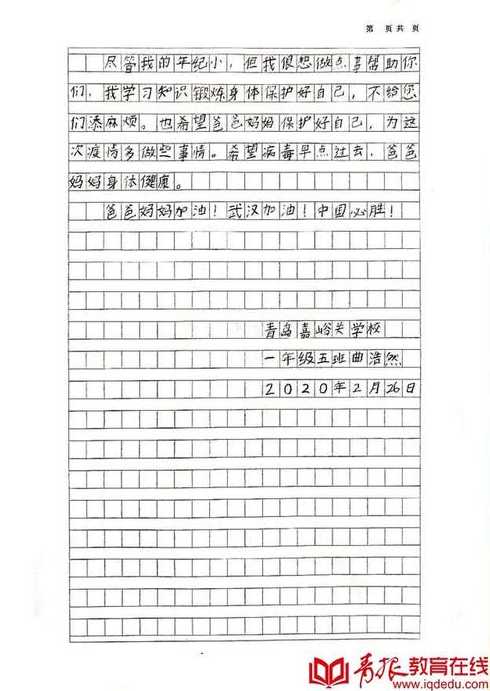 第 页共 页
尽管我的年纪小，但我很想做点事帮助你
们，我学习知识锻炼身体保护好自己，不给您
们添麻烦。也希望爸爸妈妈保护好自己，为这
次疫情多做些事情。希望病毒早点过去，爸爸
妈妈身体健康。
爸爸妈妈加油！武汉加油！中国必胜！
青岛嘉峪关学校
一年级五班曲浩然
2020年2月26日
青报教育在线
www.iqdedu.com